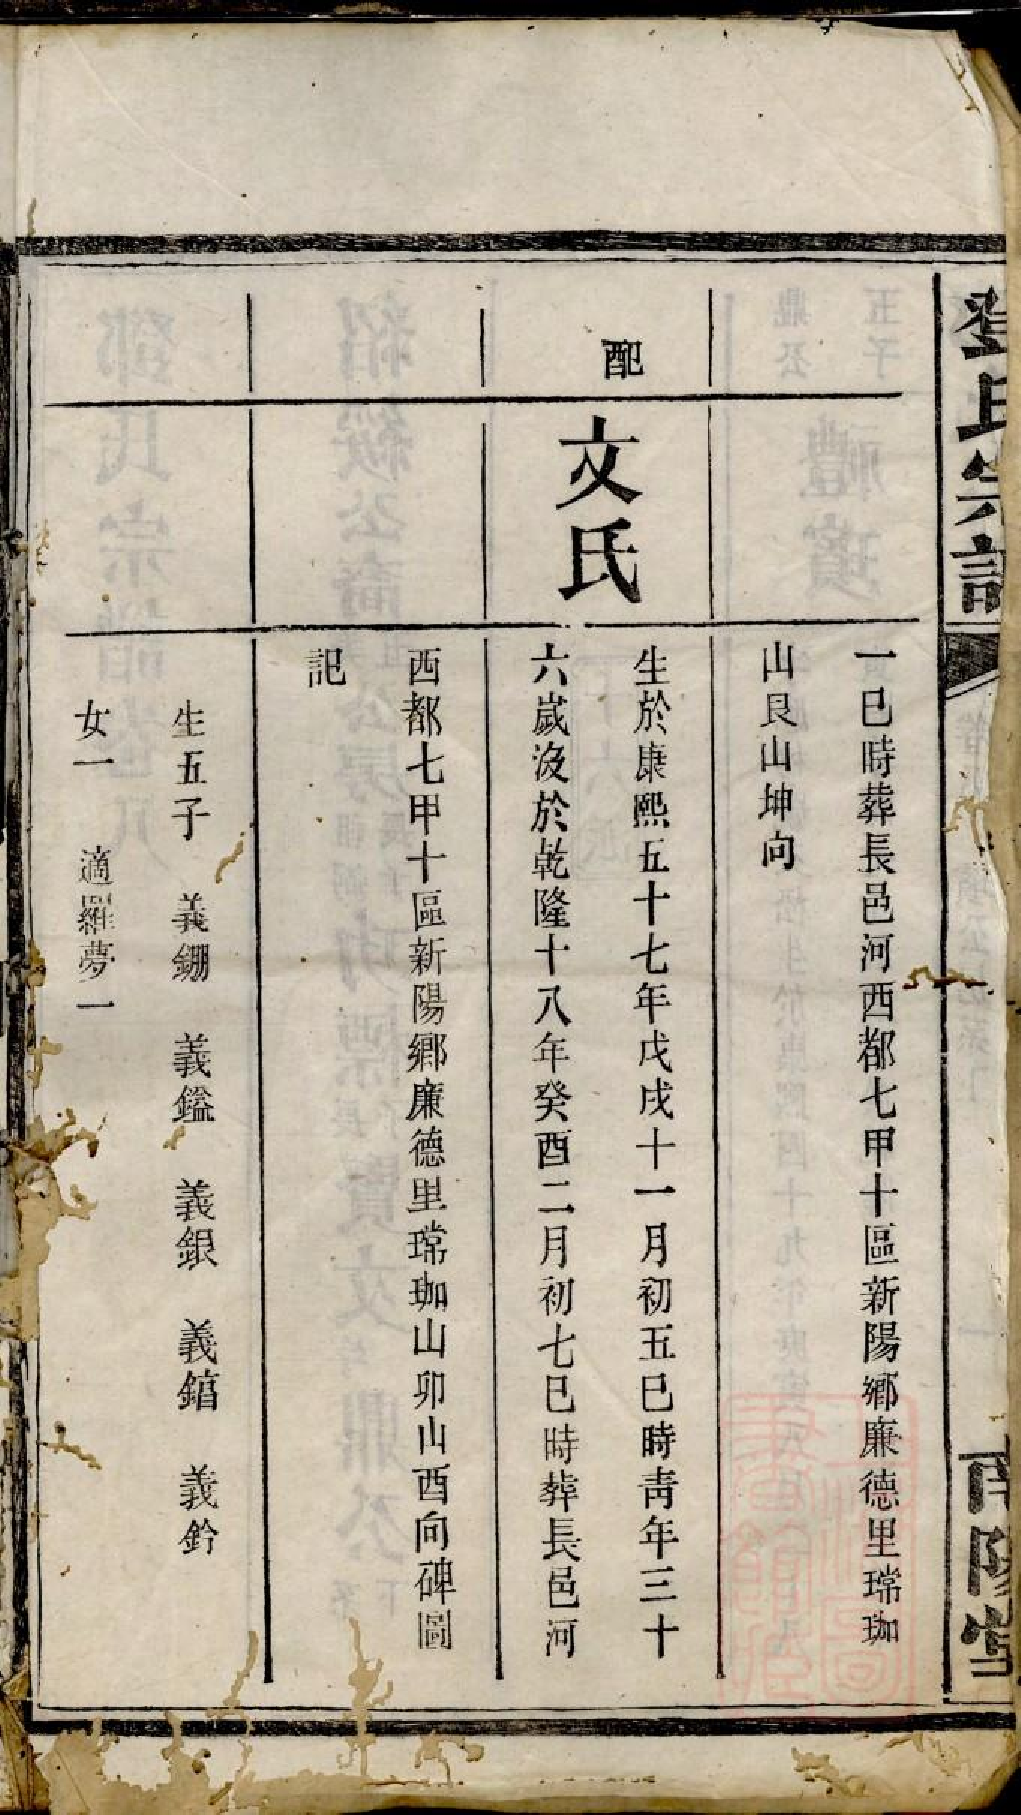 鄧氏宗譜
南陽堂
一巳時葬長邑河西都七甲十區新陽鄉廉德里瑺珈
山艮山坤向
配
文氏
生於康熙五十七年戊戌十一月初五巳時青年三十
六歲沒於乾隆十八年癸酉二月初七巳時葬長邑河
西都七甲十區新陽鄉廉德里瑺珈山卯山酉向碑圖
記
生五子 義鎺 義鎰 義銀 義錇 義鈐
女一 適羅夢一